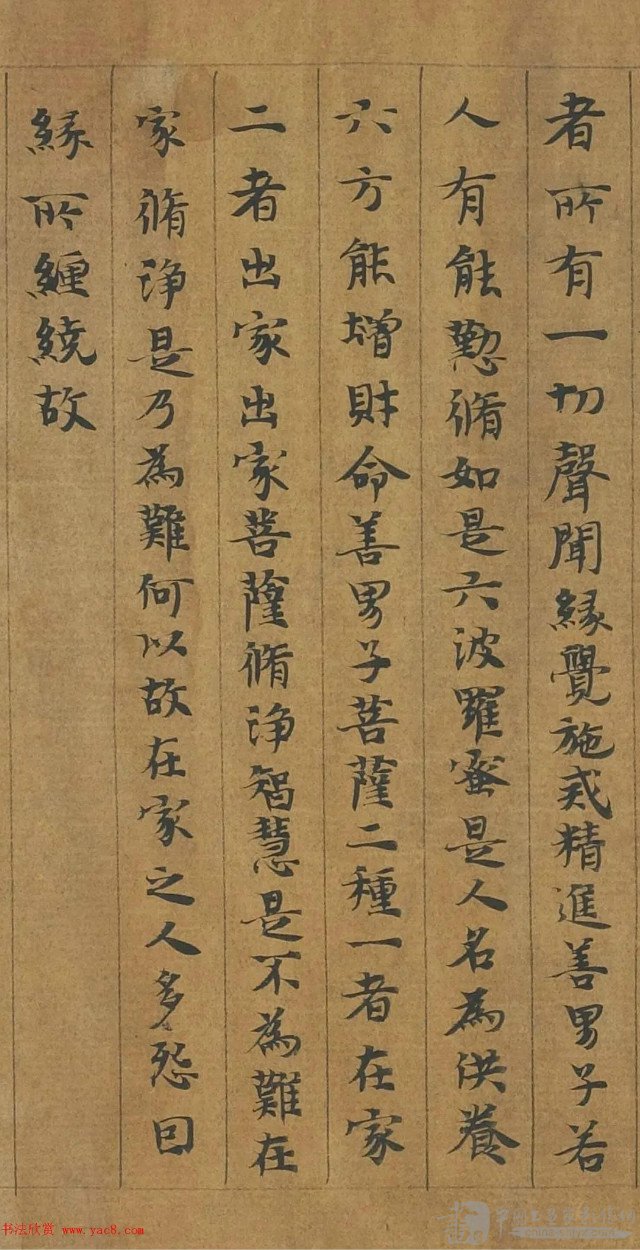 者所有一切聲聞緣覺施戒精進善男子若
人有能懃脩如是六波羅蜜是人名為供養
六方能增財命善男子菩薩二種一者在家
二者出家出家菩薩脩淨智慧是不為難在
家脩淨是乃為難何以故在家之人多惡因
緣所纏繞故
书法欣赏 www.yac8.com